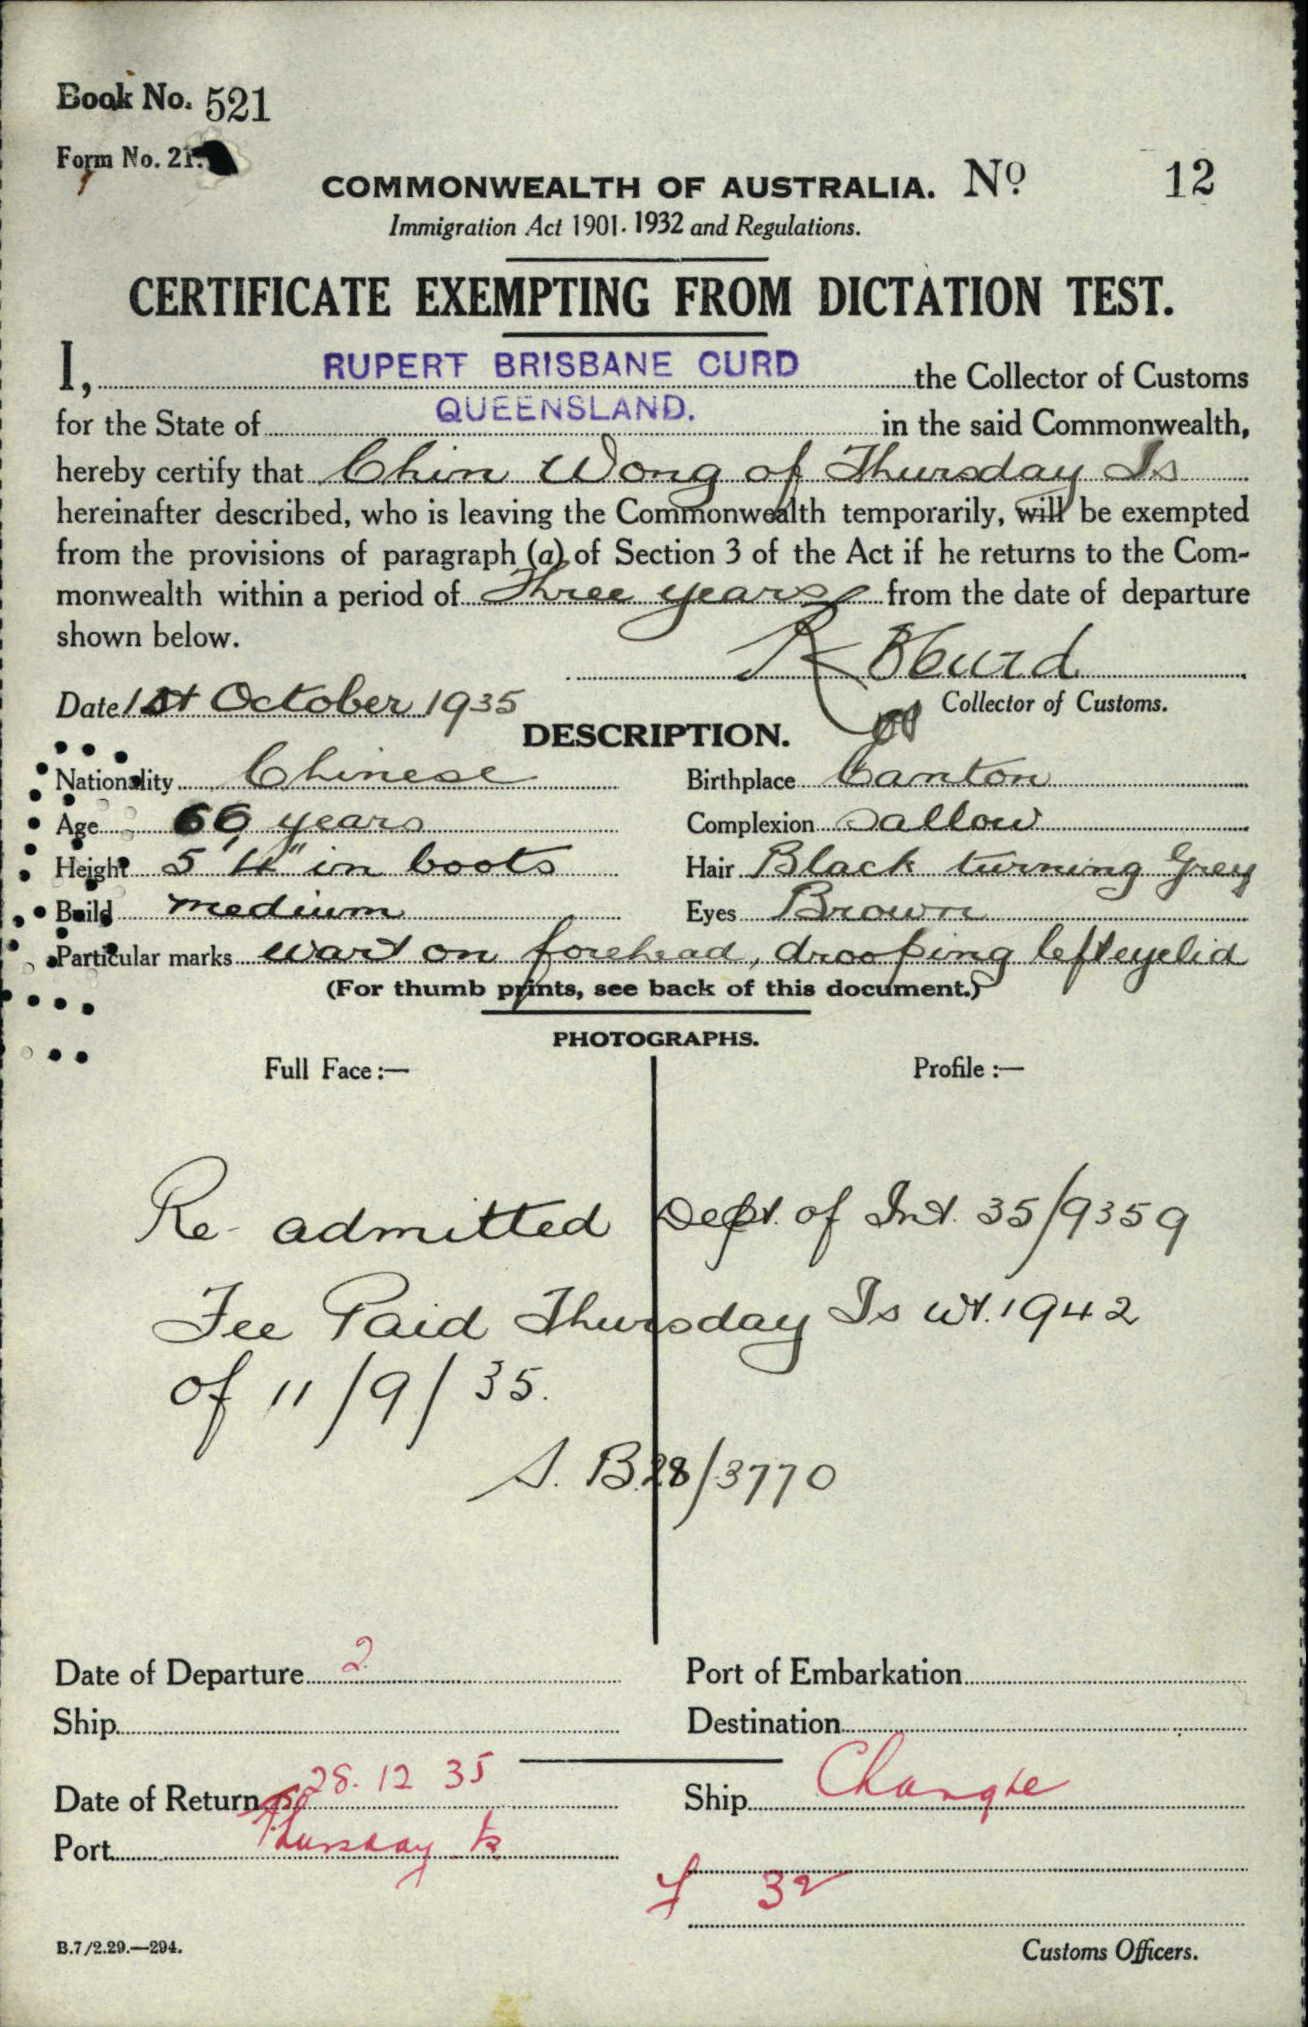 Book No. 521
Form No. 21.
COMMONWEALTH OF AUSTRALIA. No 12
Immigration Act 1901-1932 and Regulations.
CERTIFICATE EXEMPTING FROM DICTATION TEST.
I, RUPERT BRISBANE CURD the Collector of Customs
for the State of QUEENSLAND. in the said Commonwealth,
hereby certify that Chin Wong of Thursday Is
hereinafter described, who is leaving the Commonwealth temporarily, will be exempted
from the provisions of paragraph (a) of Section 3 of the Act if he returns to the Com-
monwealth within a period of Three years from the date of departure
shown below.
R B Curd
Date 1st October 1935 Collector of Customs.
DESCRIPTION.
Nationality Chinese Birthplace Canton
Age 66 years Complexion Sallow
Height 5' 4" in boots Hair Black turning Grey
Build medium Eyes Brown
Particular marks wart on forehead, drooping left eyelid
(For thumb prints, see back of this document.)
PHOTOGRAPHS.
Full Face :— Profile :—
Re-admitted Dept. of Int. 35/9359
Fee Paid Thursday Is wt. 1942
of 11/9/35.
S. B. 28/3770
Date of Departure 2 Port of Embarkation
Ship Destination
Date of Return 28.12 35 Ship Changte
Port Thursday Is
32
B.7/2.29.—294. Customs Officers.